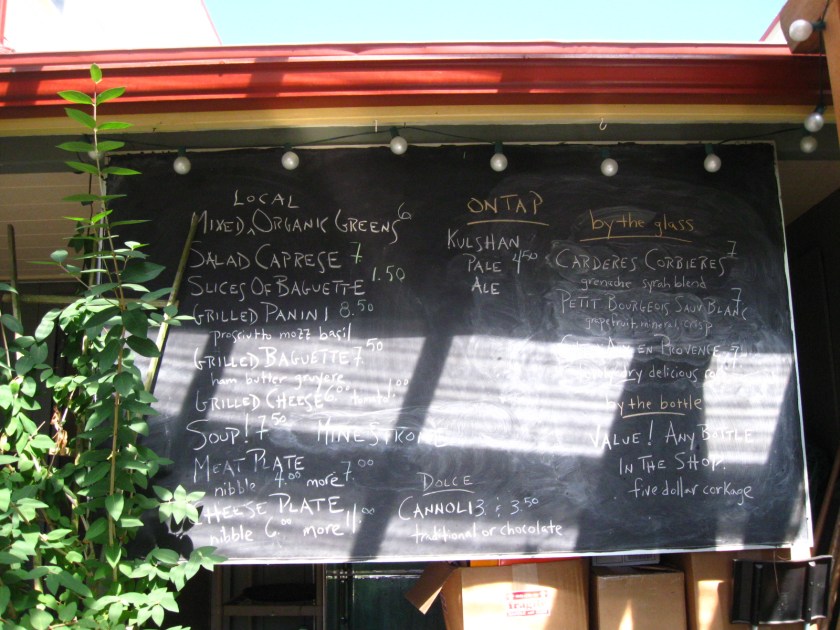 LOCAL
MIXED, ORGANIC GREENS 6
SALAD CAPRESE 7
SLICES OF BAGUETTE 1.50
GRILLED PANINI 8.50
prosciutto mozz basil
GRILLED BAGUETTE 7.50
ham butter gruyere
GRILLED CHEESE 6.00
SOUP! 7.50 MINESTRONE
MEAT PLATE
nibble 4.00 more 7.00
CHEESE PLATE
nibble 6.00 more 11.00
ON TAP
KULSHAN
PALE 4.50
ALE
DOLCE
CANNOLI 3. & 3.50
traditional or chocolate
by the glass
CARDERES CORBIERES 7
grenache syrah blend
PETIT BOURGEOIS SAUV BLANC 7
grapefruit mineral crisp
EN PROVENCE 7
dry delicious
by the bottle
VALUE! ANY BOTTLE
IN THE SHOP.
five dollar corkage